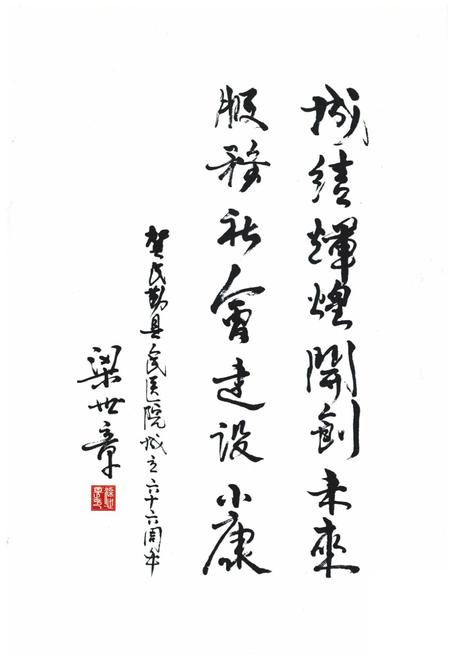 成绩輝煌開創未來
服務社會建设小康
贺民勤县人民医院成立六十六周年
梁世章